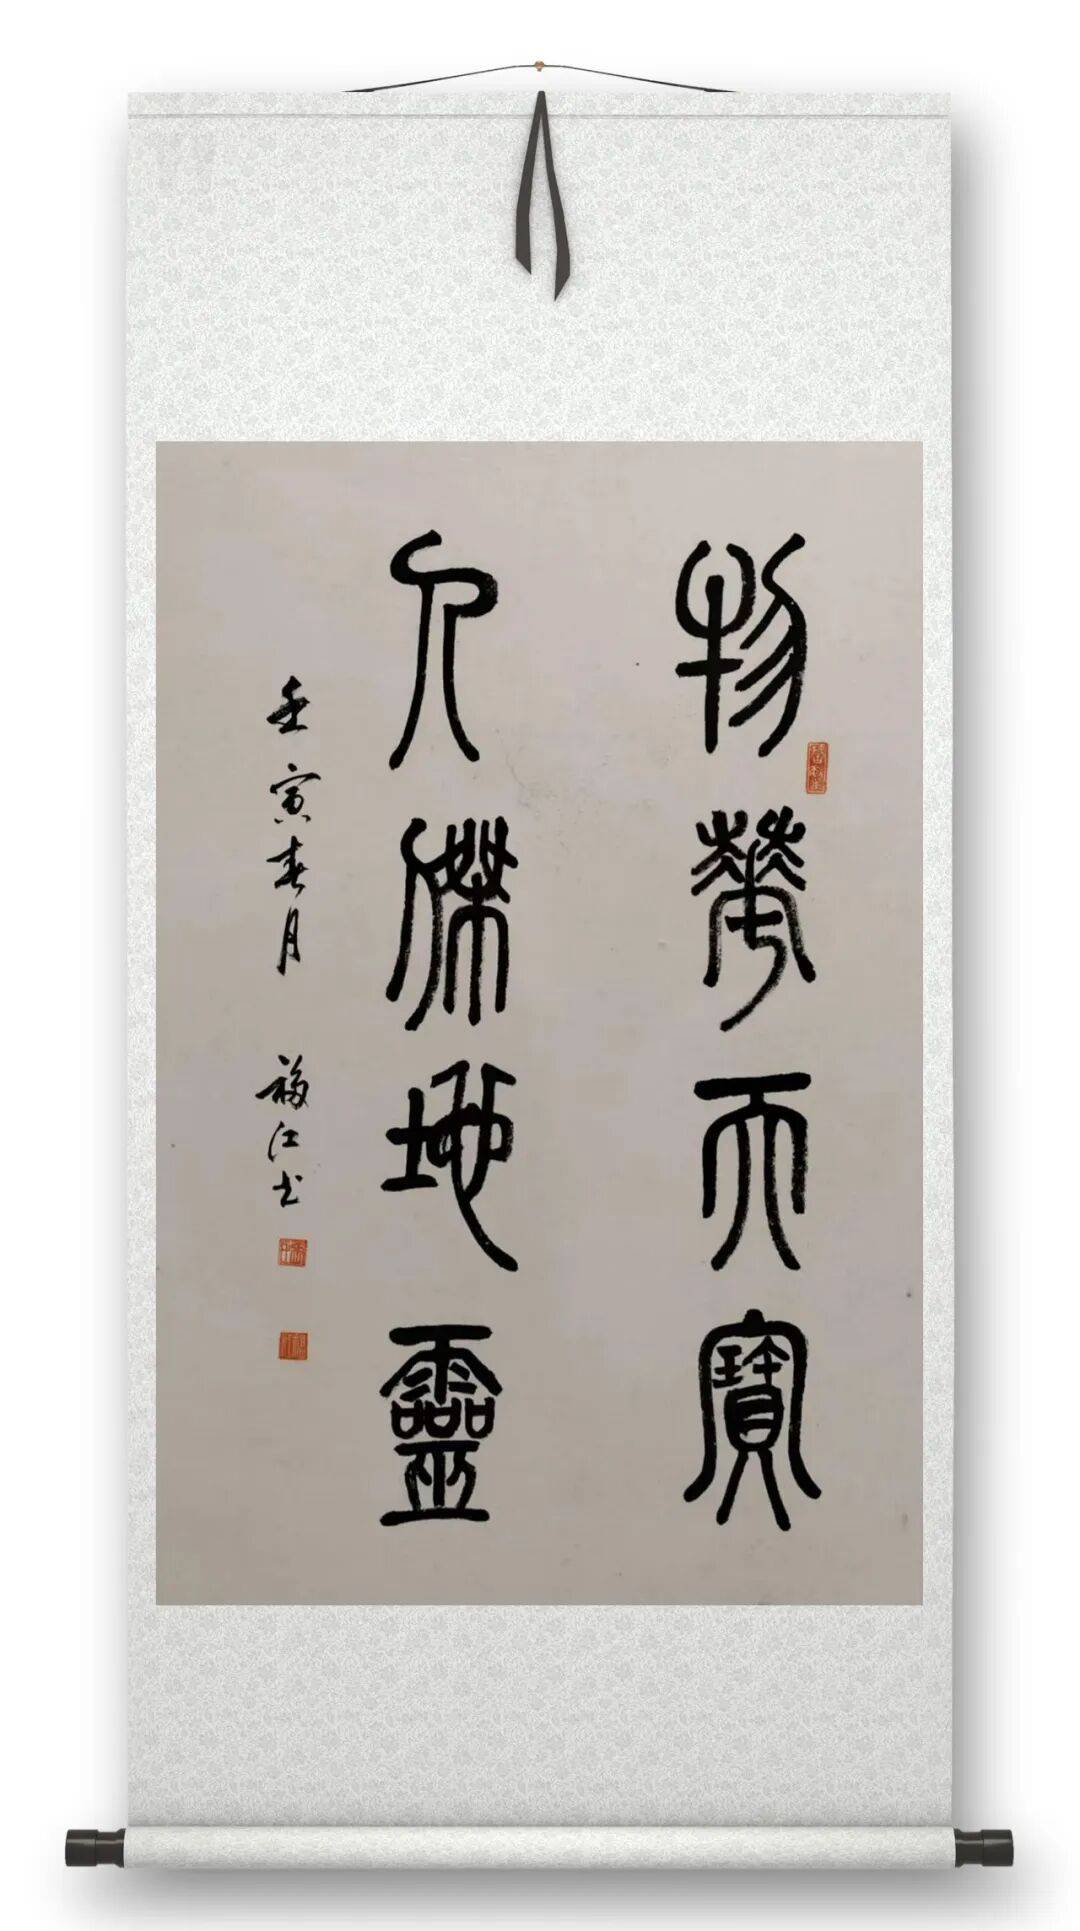 物華天寶
人傑地靈
壬寅春月 福江书